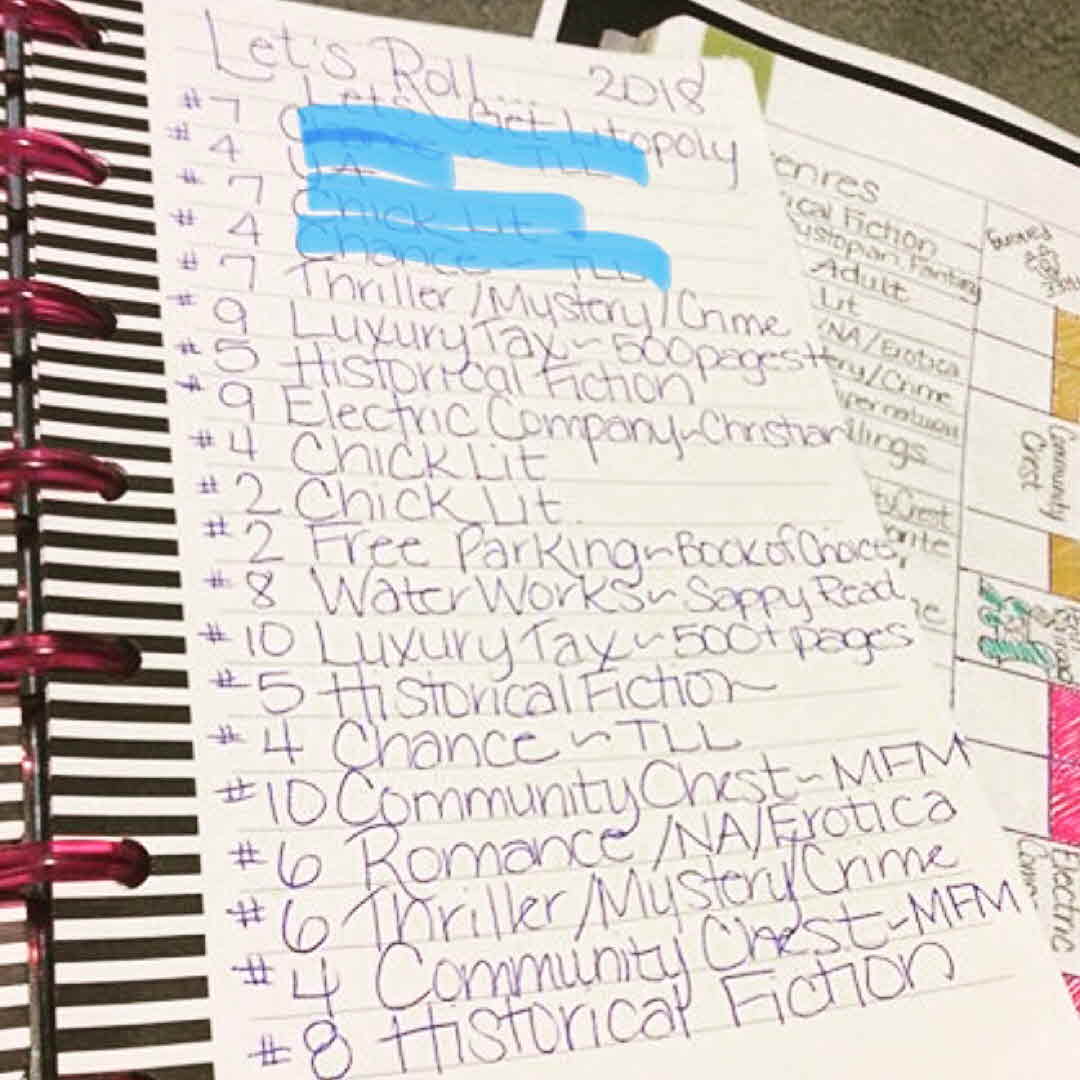 Let's Roll... 2018
Let's Get Litopoly
#7 TLL
#4 YA
#7 Chick Lit
#4 Chance ~ TLL
#7 Thriller/Mystery/Crime
#9 Luxury Tax ~ 500 pages +
#5 Historical Fiction
#9 Electric Company ~ Christian
#4 Chick Lit
#2 Chick Lit
#2 Free Parking ~ Book of Choice
#8 Water Works ~ Sappy Read
#10 Luxury Tax ~ 500+ pages
#5 Historical Fiction
#4 Chance ~ TLL
#10 Community Chest ~ MFM
#6 Romance/NA/Erotica
#6 Thriller/Mystery/Crime
#4 Community Chest ~ MFM
#8 Historical Fiction
enres
ical Fiction
ystopian Fantasy
Adult
Lit
/NA/Erotica
ery/Crime
pernatural
llings
ty Chest
orite
Community
Chest
Electric